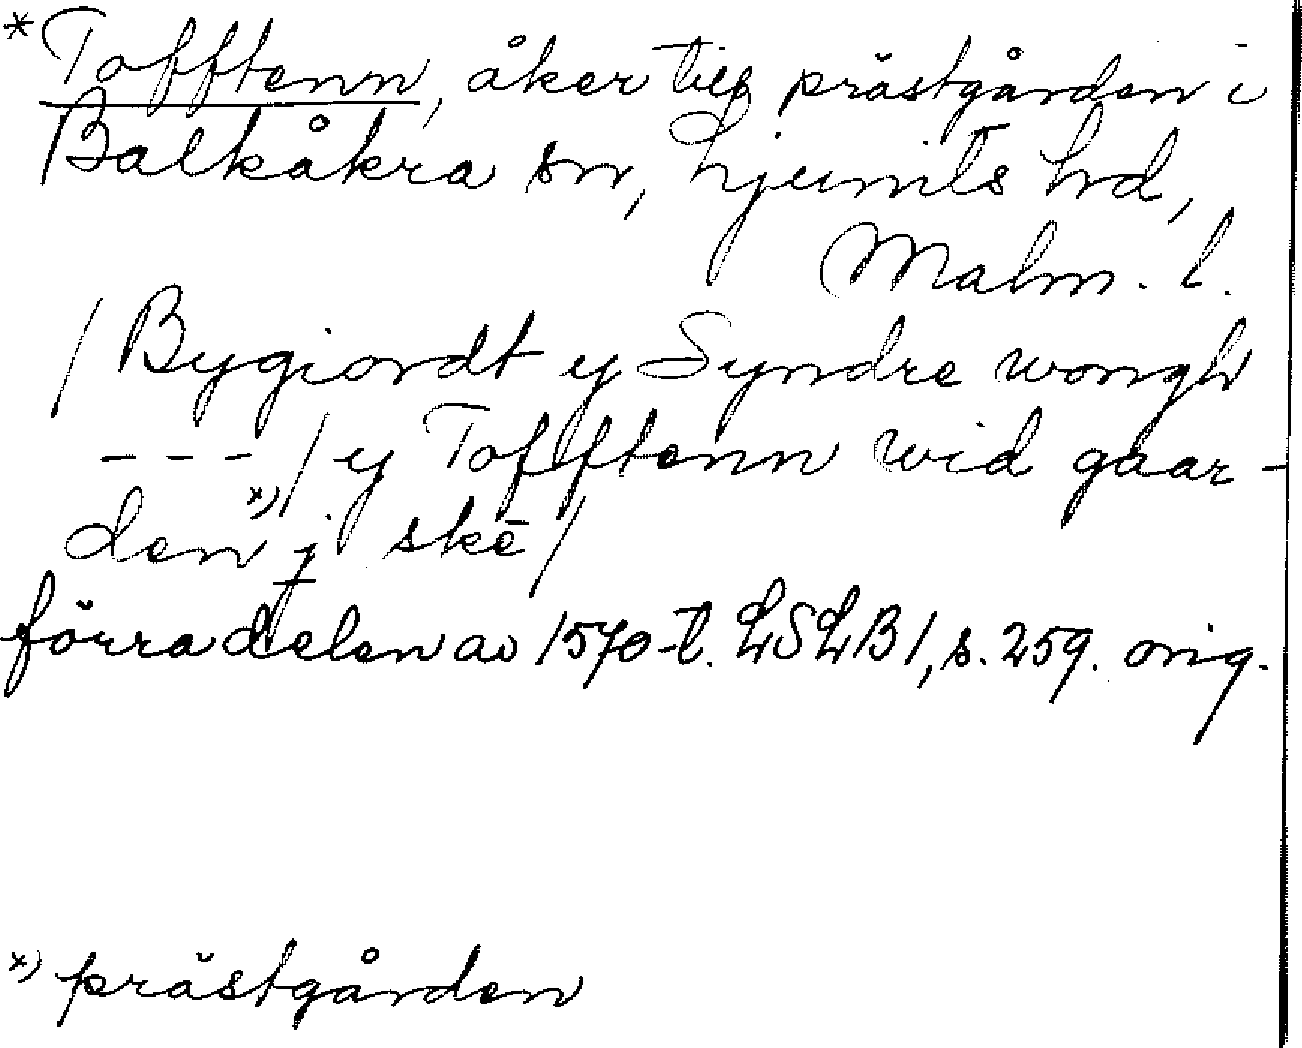 *Tofftenn, åker till prästgården i
Balkåkra sn, Ljunits hd,
Malm. l.
/ Bygiordt y Syndre wongh
- - - / y Tofftenn wid gaar-
den x) j skē /
förra delen av 1570-t. LSLB 1, s. 259. orig.
x) prästgården